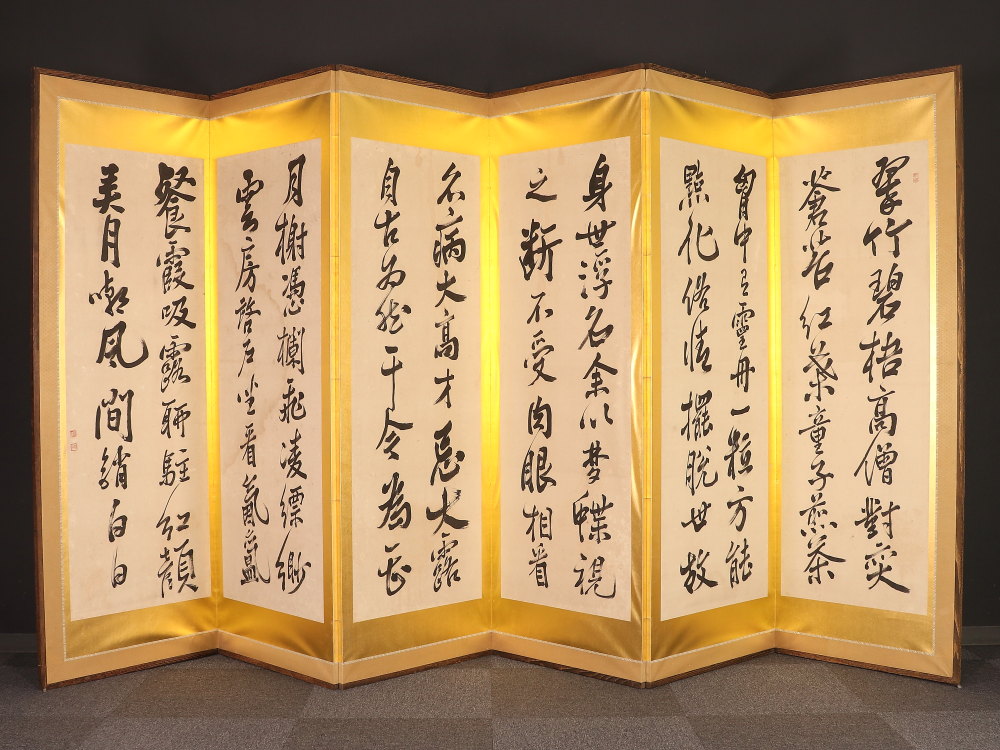 翠竹碧梧高僧對奕
蒼苔红葉童子煎茶
胷中有靈丹一粒方能
點化俗情擺脱世故
身世浮名余以梦蝶視
之断不受肉眼相看
名病大高才忌大露
自古为然于今為甚
月榭憑欄飛凌縹緲
雲房啓户坐看氤氳
餐霞吸露聊駐红顏
弄月嘲风閒銷白日